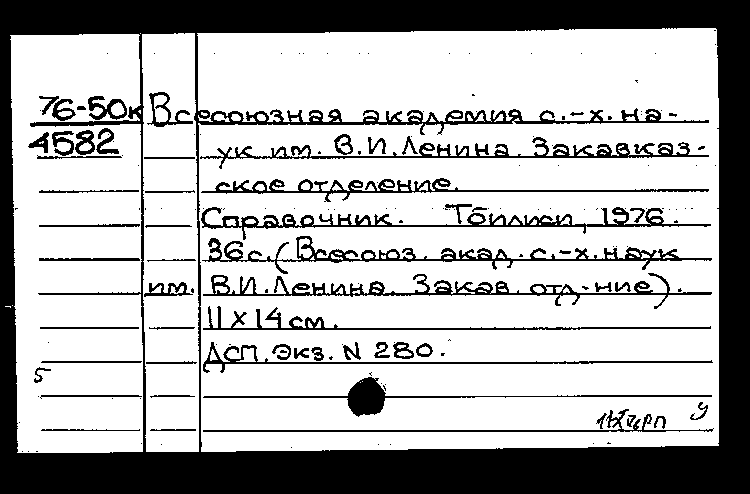 76-50к Всесоюзная академия с.-х. на-
4582 ук им. В.И.Ленина. Закавказ-
ское отделение.
Справочник. Тбилиси, 1976.
36с. (Всесоюз. акад. с.-х. наук
им. В.И.Ленина. Закав. отд-ние).
11 х 14 см.
ДСП. Экз. N 280.
5
у